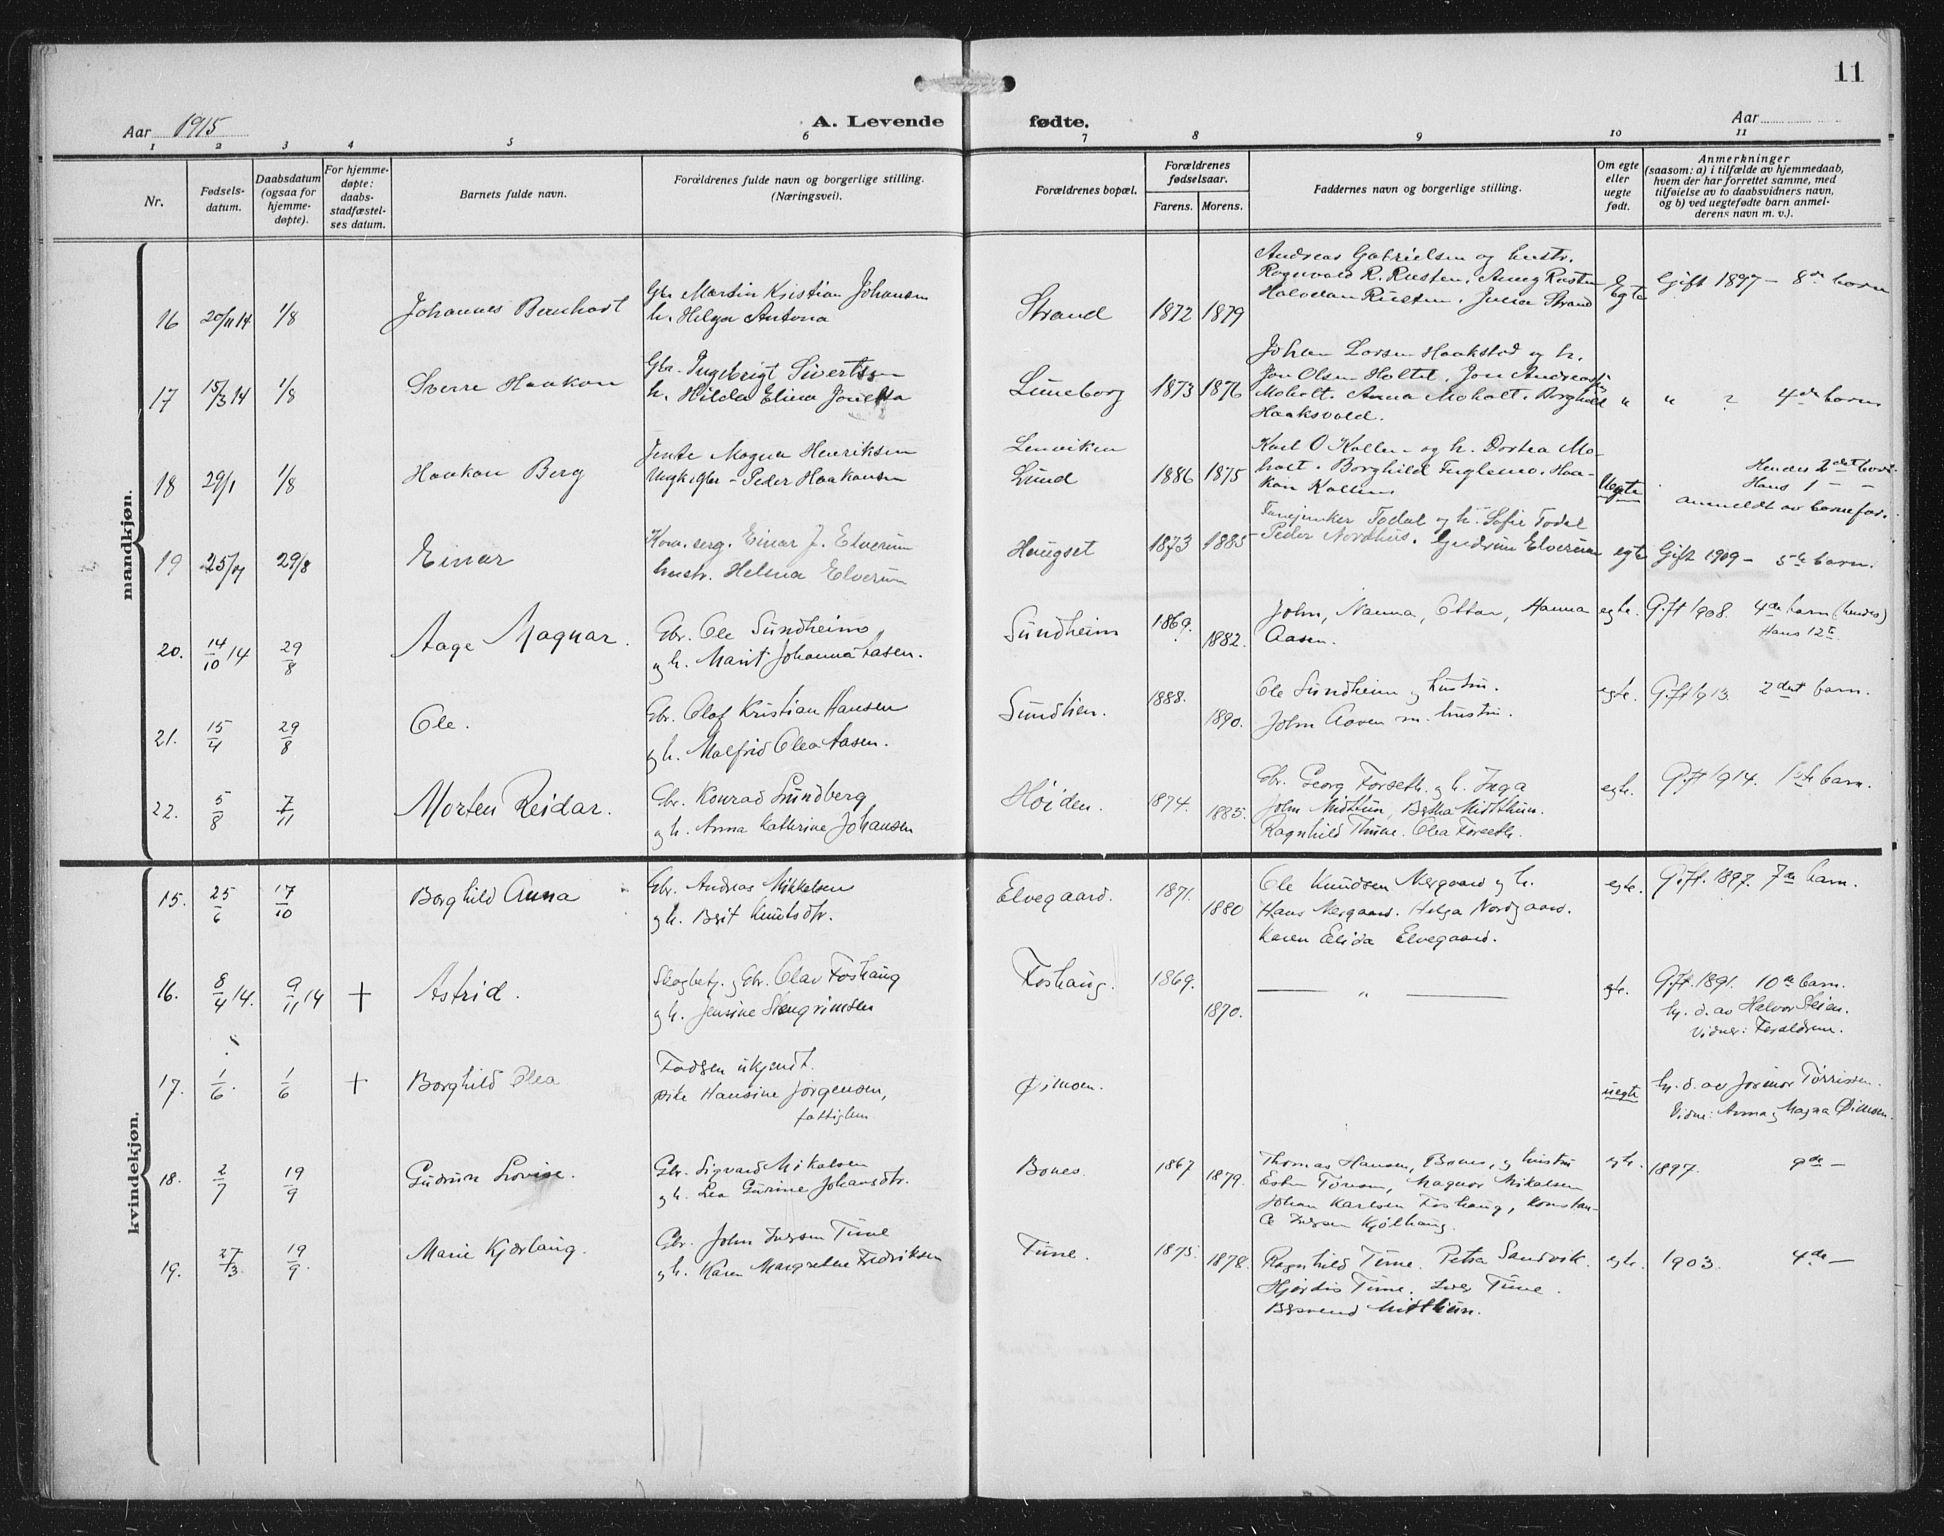 11
Aar 1915
A. Levende fødte.
Aar
1 2 3 4 5 6 7 8 9 10 11
Nr.
Fødsels-
datum.
Daabsdatum
(ogsaa for
hjemme-
døpte).
For hjemme-
døpte:
daabs-
stadfæstel-
ses datum.
Barnets fulde navn.
Forældrenes fulde navn og borgerlige stilling.
(Næringsvei).
Forældrenes bopæl.
Forældrenes
fødselsaar.
Farens. Morens.
Faddernes navn og borgerlige stilling.
Om egte
eller
uegte
født.
Anmerkninger
(saasom: a) i tilfælde av hjemmedaab,
hvem der har forrettet samme, med
tilføielse av to daabsvidners navn,
og b) ved uegtefødte barn anmel-
derens navn m. v.).
mandkjøn.
16 20/11 14 1/8 Johannes Bernhart
Gbr Martin Kristian Johansen
h. Helga Antona
Strand 1872 1879
Andreas Gabrielsen og hustr.
Rognvald R. Rusten, Rusten
Halvdan Rusten, Julia Strand
Egte Gift 1897 - 8de barn
17 15/3 14 1/8 Sverre Haakon
Gbr. Ingebrigt Sivertsen
h. Hilda Elina Jonetta
Luneborg 1873 1876
Johan Larsen Haakstad og h.
Jon Olsen Holtet, Jon Andreas
Moholt. Anna Moholt. Borghild
Haaksvold.
" " ? 4de barn
18 29/1 1/8 Haakon Berg
Jente Magna Henriksen
Ungk. gbr - Peder Haakonsen
Lenviken
Lund 1886 1875
Karl O Kollen - og h. Dortea Mo-
holt. Borghild Fuglemo. Haa-
kon Kollen
Uegte
Hendes 2det barn
Hans 1 - -
anmeldt av barnefar.
19 25/ 29/8 Einar
Kom. serg. Einar J. Elverum
hustr. Helma Elverum
Haugset 1873 1885
Fanejunker Todal og h. Sofie Todal
Peder Nordhus. Gudrun Elverum
egte Gift 1909 - 5te barn.
20. 14/10 14 29/8 Aage Magnar.
Gbr. Ole Sundheim
og h. Marit Johanna Aasen.
Sundheim 1869. 1882.
John, Nanna, Ottar, Hanna
Aasen.
egte. Gift 1908. 4de barn (hendes)
Hans 12te
21. 15/4 29/8 Ole.
Gbr. Olaf Kristian Hansen
og h. Malfrid Olea Aasen.
Sundlien. 1888. 1890.
Ole Sundheim og hustru.
John Aasen m. hustru.
egte. Gift 1913. 2det barn.
22. 5/8 7/11 Morten Reidar.
Gbr. Konrad Lundberg
og h. Anna Kathrine Johansen
Høiden. 1874. 1885.
Gbr. Georg Forseth og h. Inga
John Midthun, Midthun.
Ragnhild Thune. Olea Forseth.
egte. Gift 1914. 1ste barn.
kvindekjøn.
15. 25/6 17/10 Borghild Anna
Gbr. Andreas Mikkelsen
og h. Berit Knutsdtr.
Elvegaard. 1871. 1880
Ole Knudsen Nergaard og h.
Hans Nergaard. Helga Nordgaard.
Karen Elida Elvegaard.
egte. Gift. 1897. 7de barn.
16. 8/4 14. 9/11 14 + Astrid.
Skogbetj. og Gbr. Olav Foshaug
og h. Jensine Stengrimsen
Foshaug. 1869. 1870.
— " —
egte. Gift. 1891. 10de barn.
hj. d. av Halvor Steien.
Vidner: Foraldrene.
17. 1/6. 1/6 + Borghild Olea
Faderen ukjendt.
Pike Hansine Jørgensen,
fattiglem
Øimoen.
uegte
hj. d. av Torrissen.
Vidne: Anna og Magna Øimoen.
18. 2/7 19/9 Gudrun Lovise.
Gbr. Sigvard Mikalsen
og h. Lea Gurine Johansdtr.
Bones. 1867 1879.
Thomas Hansen, Bones, og hustru
Tonsen, Magnor Mikalsen
Johan Karlsen Foshaug, Konstan-
ce Iversen Kjølhaug.
egte. 1897. 9de -
19. 27/3 19/9 Marie Kjerlaug.
Gbr. John Iversen Tune
og h. Karen Margrethe Fredriksen
Tune. 1875. 1878.
Ragnhild Tune. Petra Sandvik.
Hjørdis Tune. Iver Tune.
Midthun.
egte. 1903. 4de -